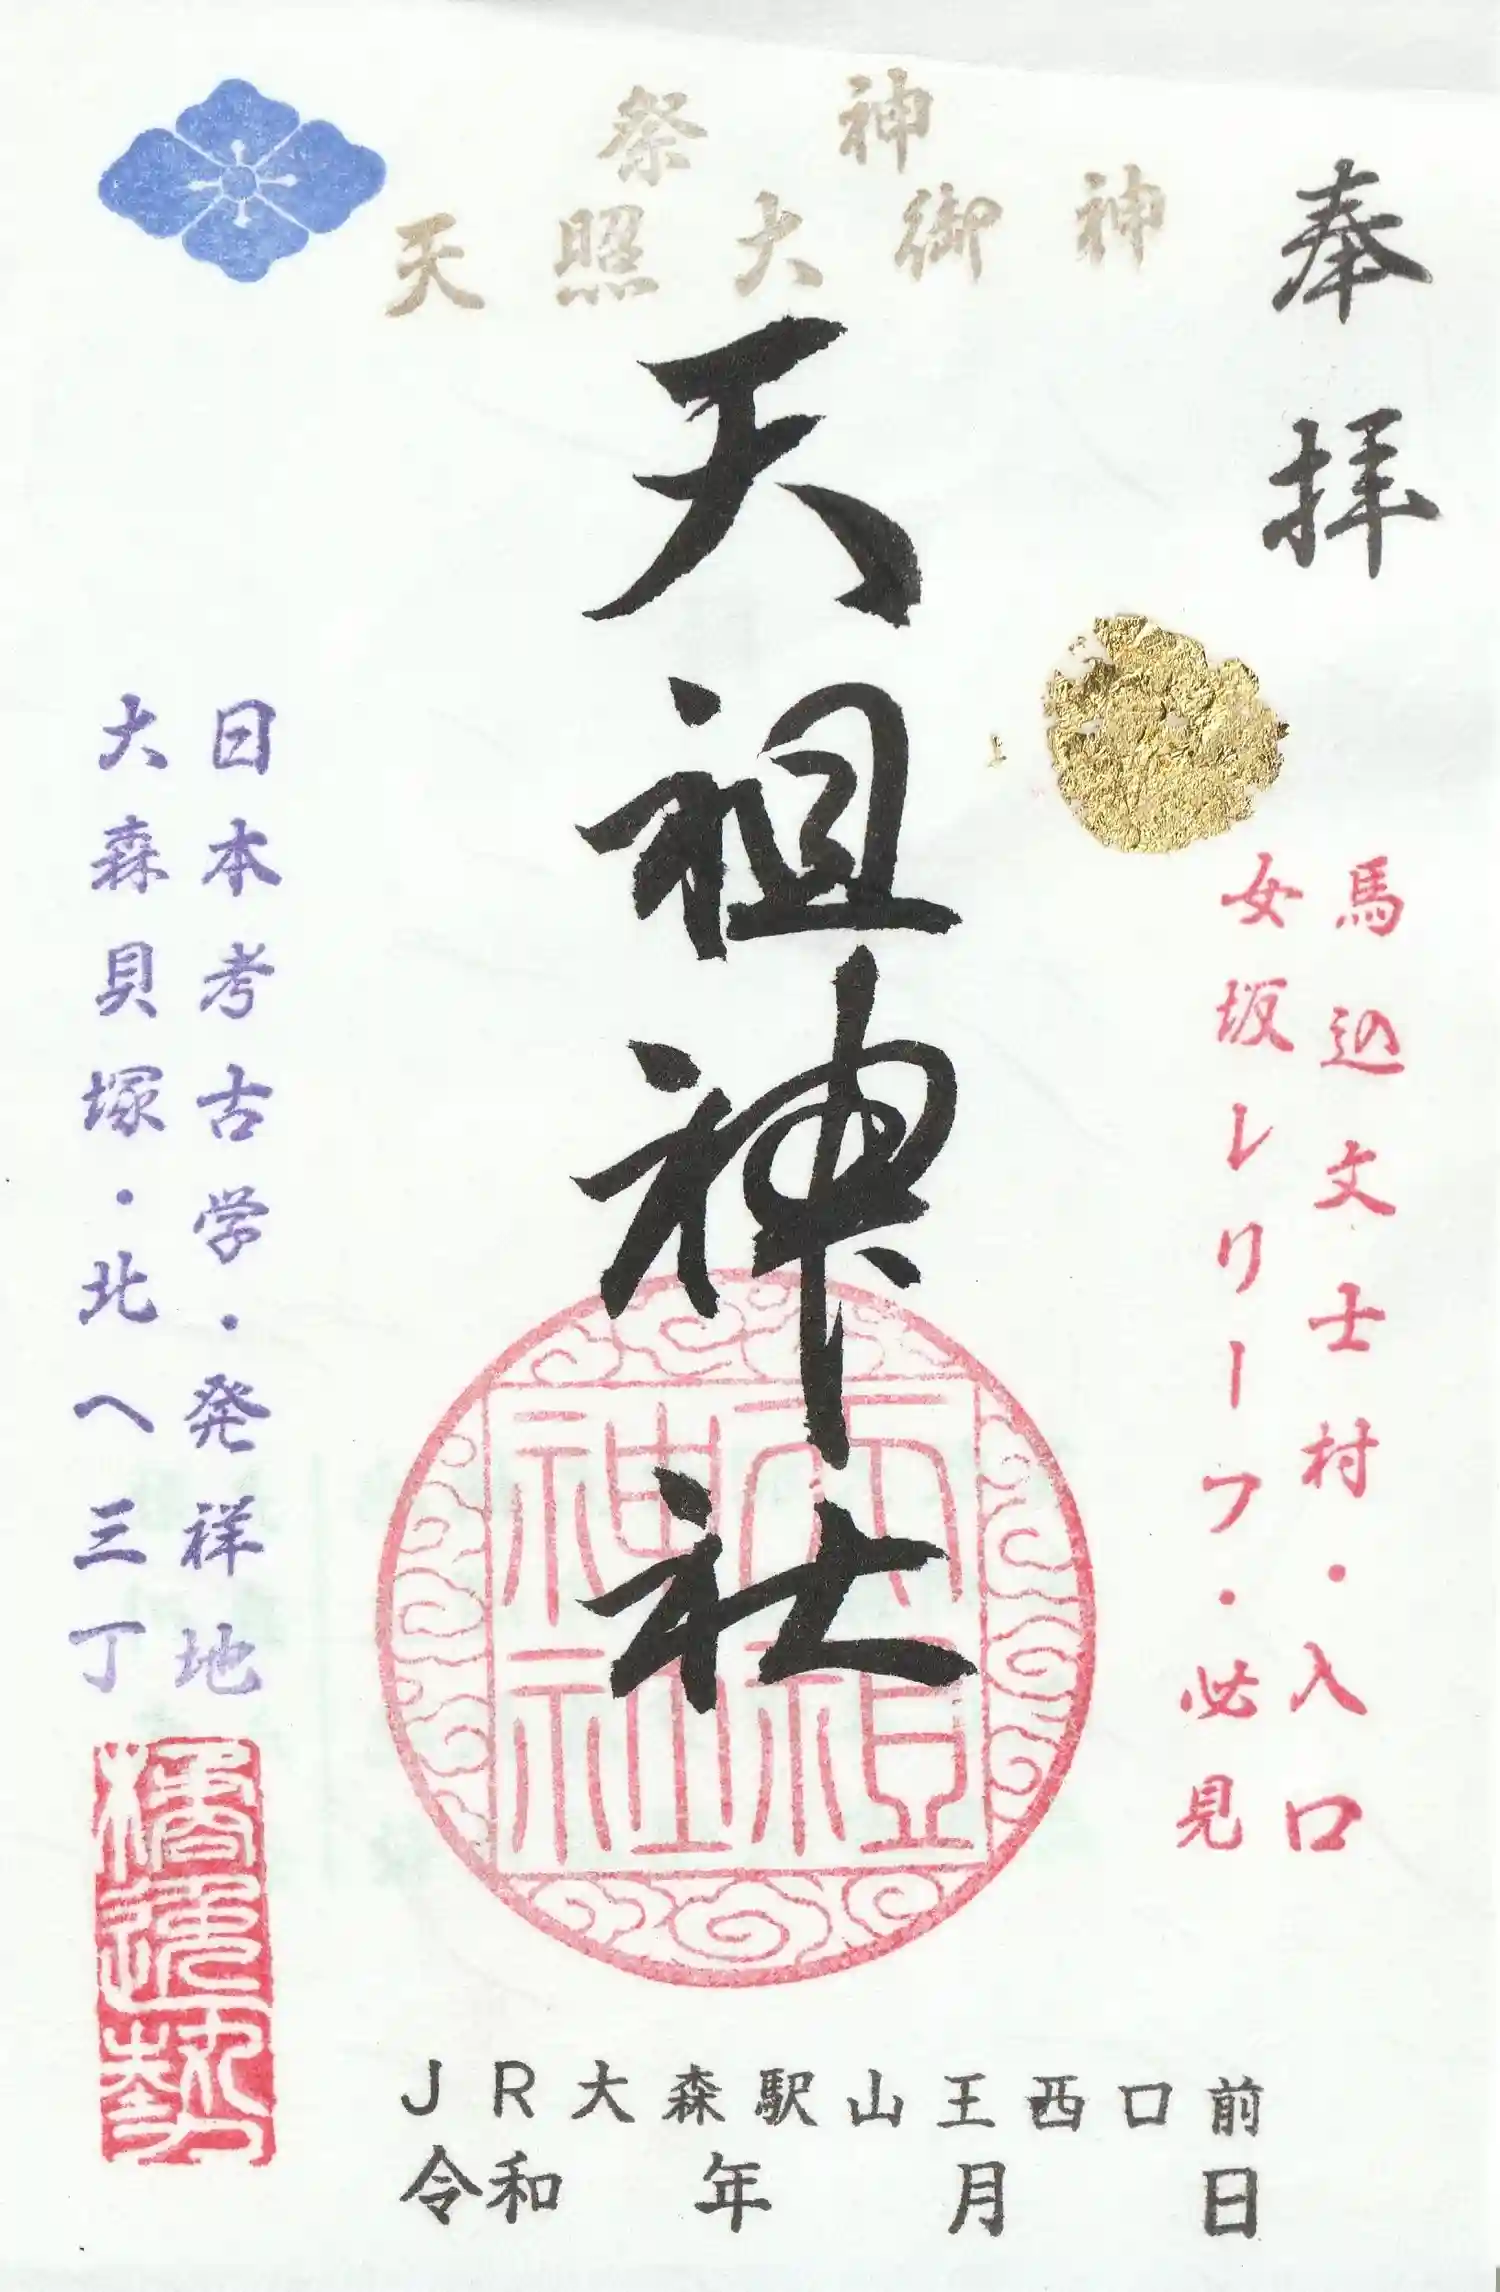 奉拝
祭神
天照大御神
天祖神社
馬込文士村・入口
女坂レリーフ・必見
日本考古学・発祥地
大森貝塚・北へ三丁
天祖
神社
橘逸勢
JR大森駅山王西口前
令和 年 月 日